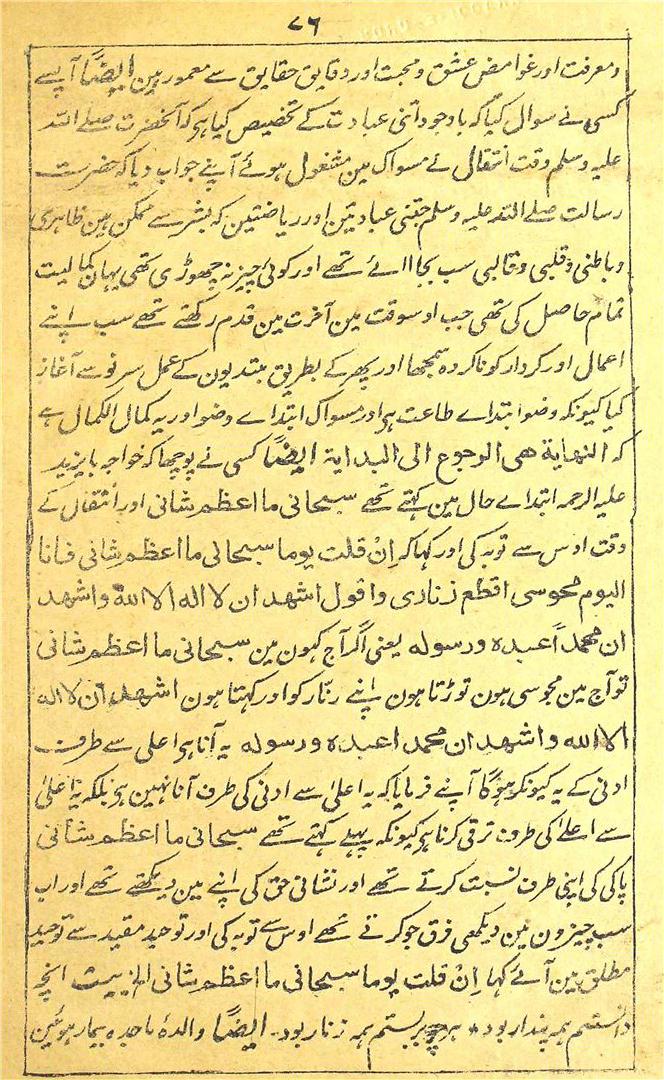 ۷۶
ومعرفت اور غوامض عشق و محبت اور دقایق حقایق سے معمور ہین ایضًا آپسے
کسی نے سوال کیا کہ باوجود اتنی عبادت کے تخصیص کیا ہو کہ آنحضرت صلے اللہ
علیہ وسلم وقت انتقال کے مسواک مین مشغول ہوئے آپنے جواب دیا کہ حضرت
رسالت صلے اللہ علیہ وسلم جتنی عبادتین اور ریاضتین کہ بشر سے ممکن ہین ظاہری
وباطنی وقلبی وقالبی سب بجا لائے تھے اور کوئی چیز نہ چھوڑی تھی یہان کمالیت
تمام حاصل کی تھی جب اوسوقت مین آخرت مین قدم رکھتے تھے سب اپنے
اعمال اور کردار کو ناکردہ سمجھا اور پھر کے بطریق مبتدیون کے عمل سر نو سے آغاز
کیا کیونکہ وضو ابتداے طاعت ہو اور مسواک ابتداے وضو اور یہ کمال الکمال ہے
کہ النهایة هی الرجوع الی البدایة ایضًا کسی نے پوچھا کہ خواجہ بایزید
علیہ الرحمہ ابتداے حال مین کہتے تھے سبحانی ما اعظم شانی اور انتقال کے
وقت اوس سے توبہ کی اور کہا کہ اِنْ قلت یوما سبحانی ما اعظم شانی فانا
الیوم مجوسی اقطع زناری واقول اشهد ان لا اله الا الله واشهد
ان محمداً عبده ورسوله یعنی اگر آج کہون مین سبحانی ما اعظم شانی
تو آج مین مجوسی ہون توڑتا ہون اپنے زنّار کو اور کہتا ہون اشهد ان لا اله
الا الله واشهد ان محمدا عبده ورسوله یہ آنا ہو اعلی سے طرف
ادنی کے یہ کیونکر ہوگا آپنے فرمایا کہ یہ اعلیٰ سے ادنی کی طرف آنا نہین ہو بلکہ یہ اعلیٰ
سے اعلےٰ کی طرف ترقی کرنا ہو کیونکہ پہلے کہتے تھے سبحانی ما اعظم شانی
پاکی کی اپنی طرف نسبت کرتے تھے اور نشانی حق کی اپنے مین دیکھتے تھے اور اب
سب چیزون مین دیکھی فرق جو کرتے تھے اوس سے توبہ کی اور توحید مقید سے توحید
مطلق مین آئے کہا اِنْ قلت یوما سبحانی ما اعظم شانی الخ بیت انچہ
دانستم ہمہ پندار بود * ہرچہ بربستم ہمہ زنار بود۔ ایضًا والدۂ ماجدہ بیمار ہوئین